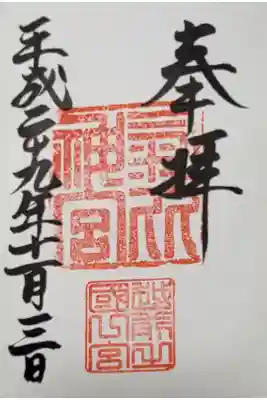 奉拝
氣比
神宮
越前之
國一宮
平成二十九年十一月三日